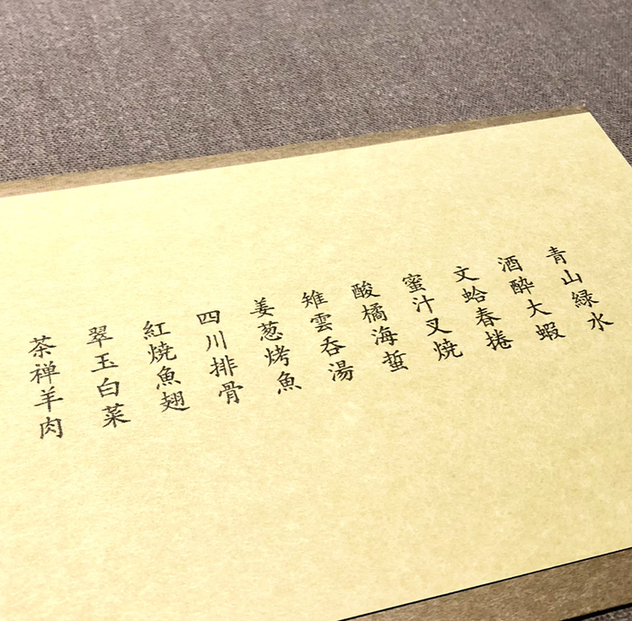 青山緑水
酒酔大蝦
文蛤春捲
蜜汁叉焼
酸橘海蜇
雉雲呑湯
姜葱烤魚
四川排骨
紅焼魚翅
翠玉白菜
茶禅羊肉